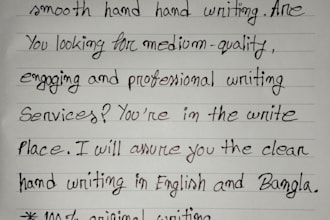 smooth hand hand writing. Are
You looking for medium-quality,
engaging and professional writing
Services? You're in the write
Place. I will assure you the clean
hand writing in English and Bangla.
* 100% original writing